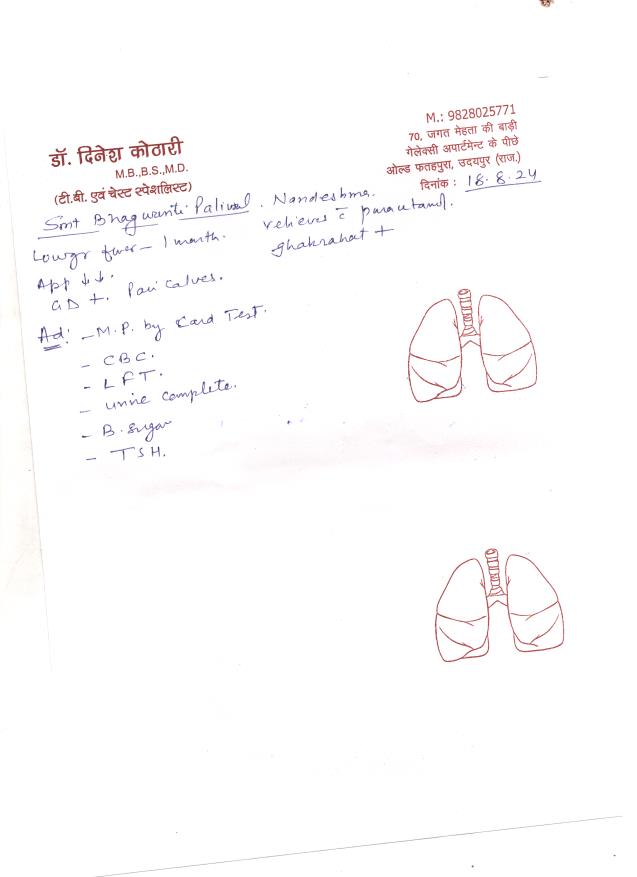 डॉ. दिनेश कोठारी
M.B.,B.S.,M.D.
(टी.बी. एवं चेस्ट स्पेशलिस्ट)
M.: 9828025771
70, जगत मेहता की बाड़ी
गेलेक्सी अपार्टमेन्ट के पीछे
ओल्ड फतहपुरा, उदयपुर (राज.)
दिनांक : 18.8.24
Smt Bhagwanti Paliwal. Nandeshma.
Lowgr fever – 1 month. relieves c̄ paracetamol.
App ↓↓. ghabrahat +
GD +. Pain Calves.
Ad: – M.P. by Card Test.
– CBC.
– LFT.
– urine complete.
– B. Sugar
– TSH.